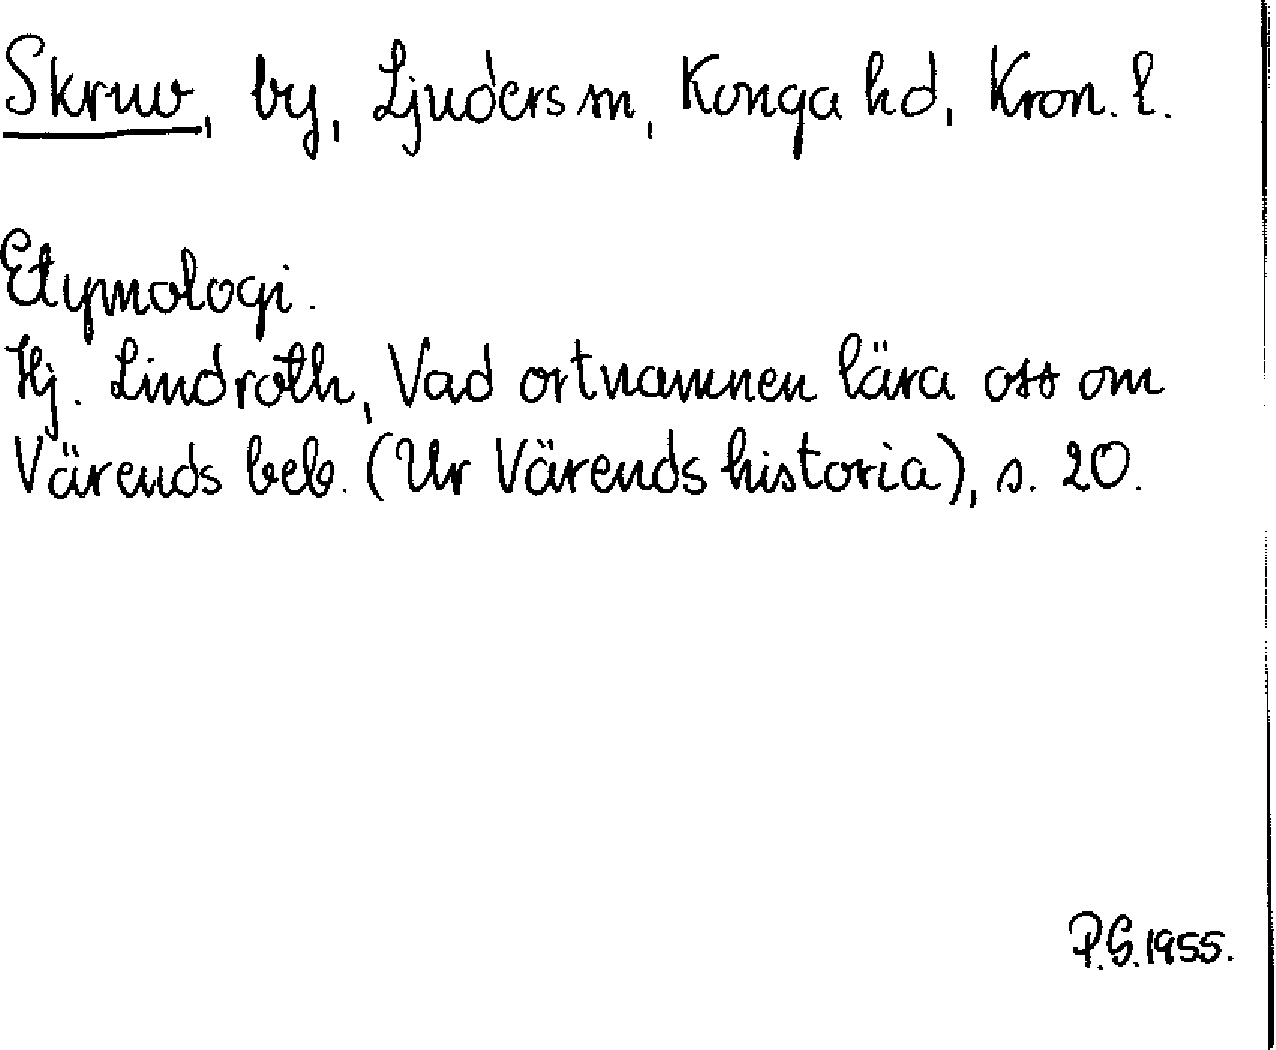 Skruv, by, Ljuders sn, Konga hd, Kron. l.
Etymologi.
Hj. Lindroth, Vad ortnamnen lära oss om
Värends beb. (Ur Värends historia), s. 20.
P.G. 1955.